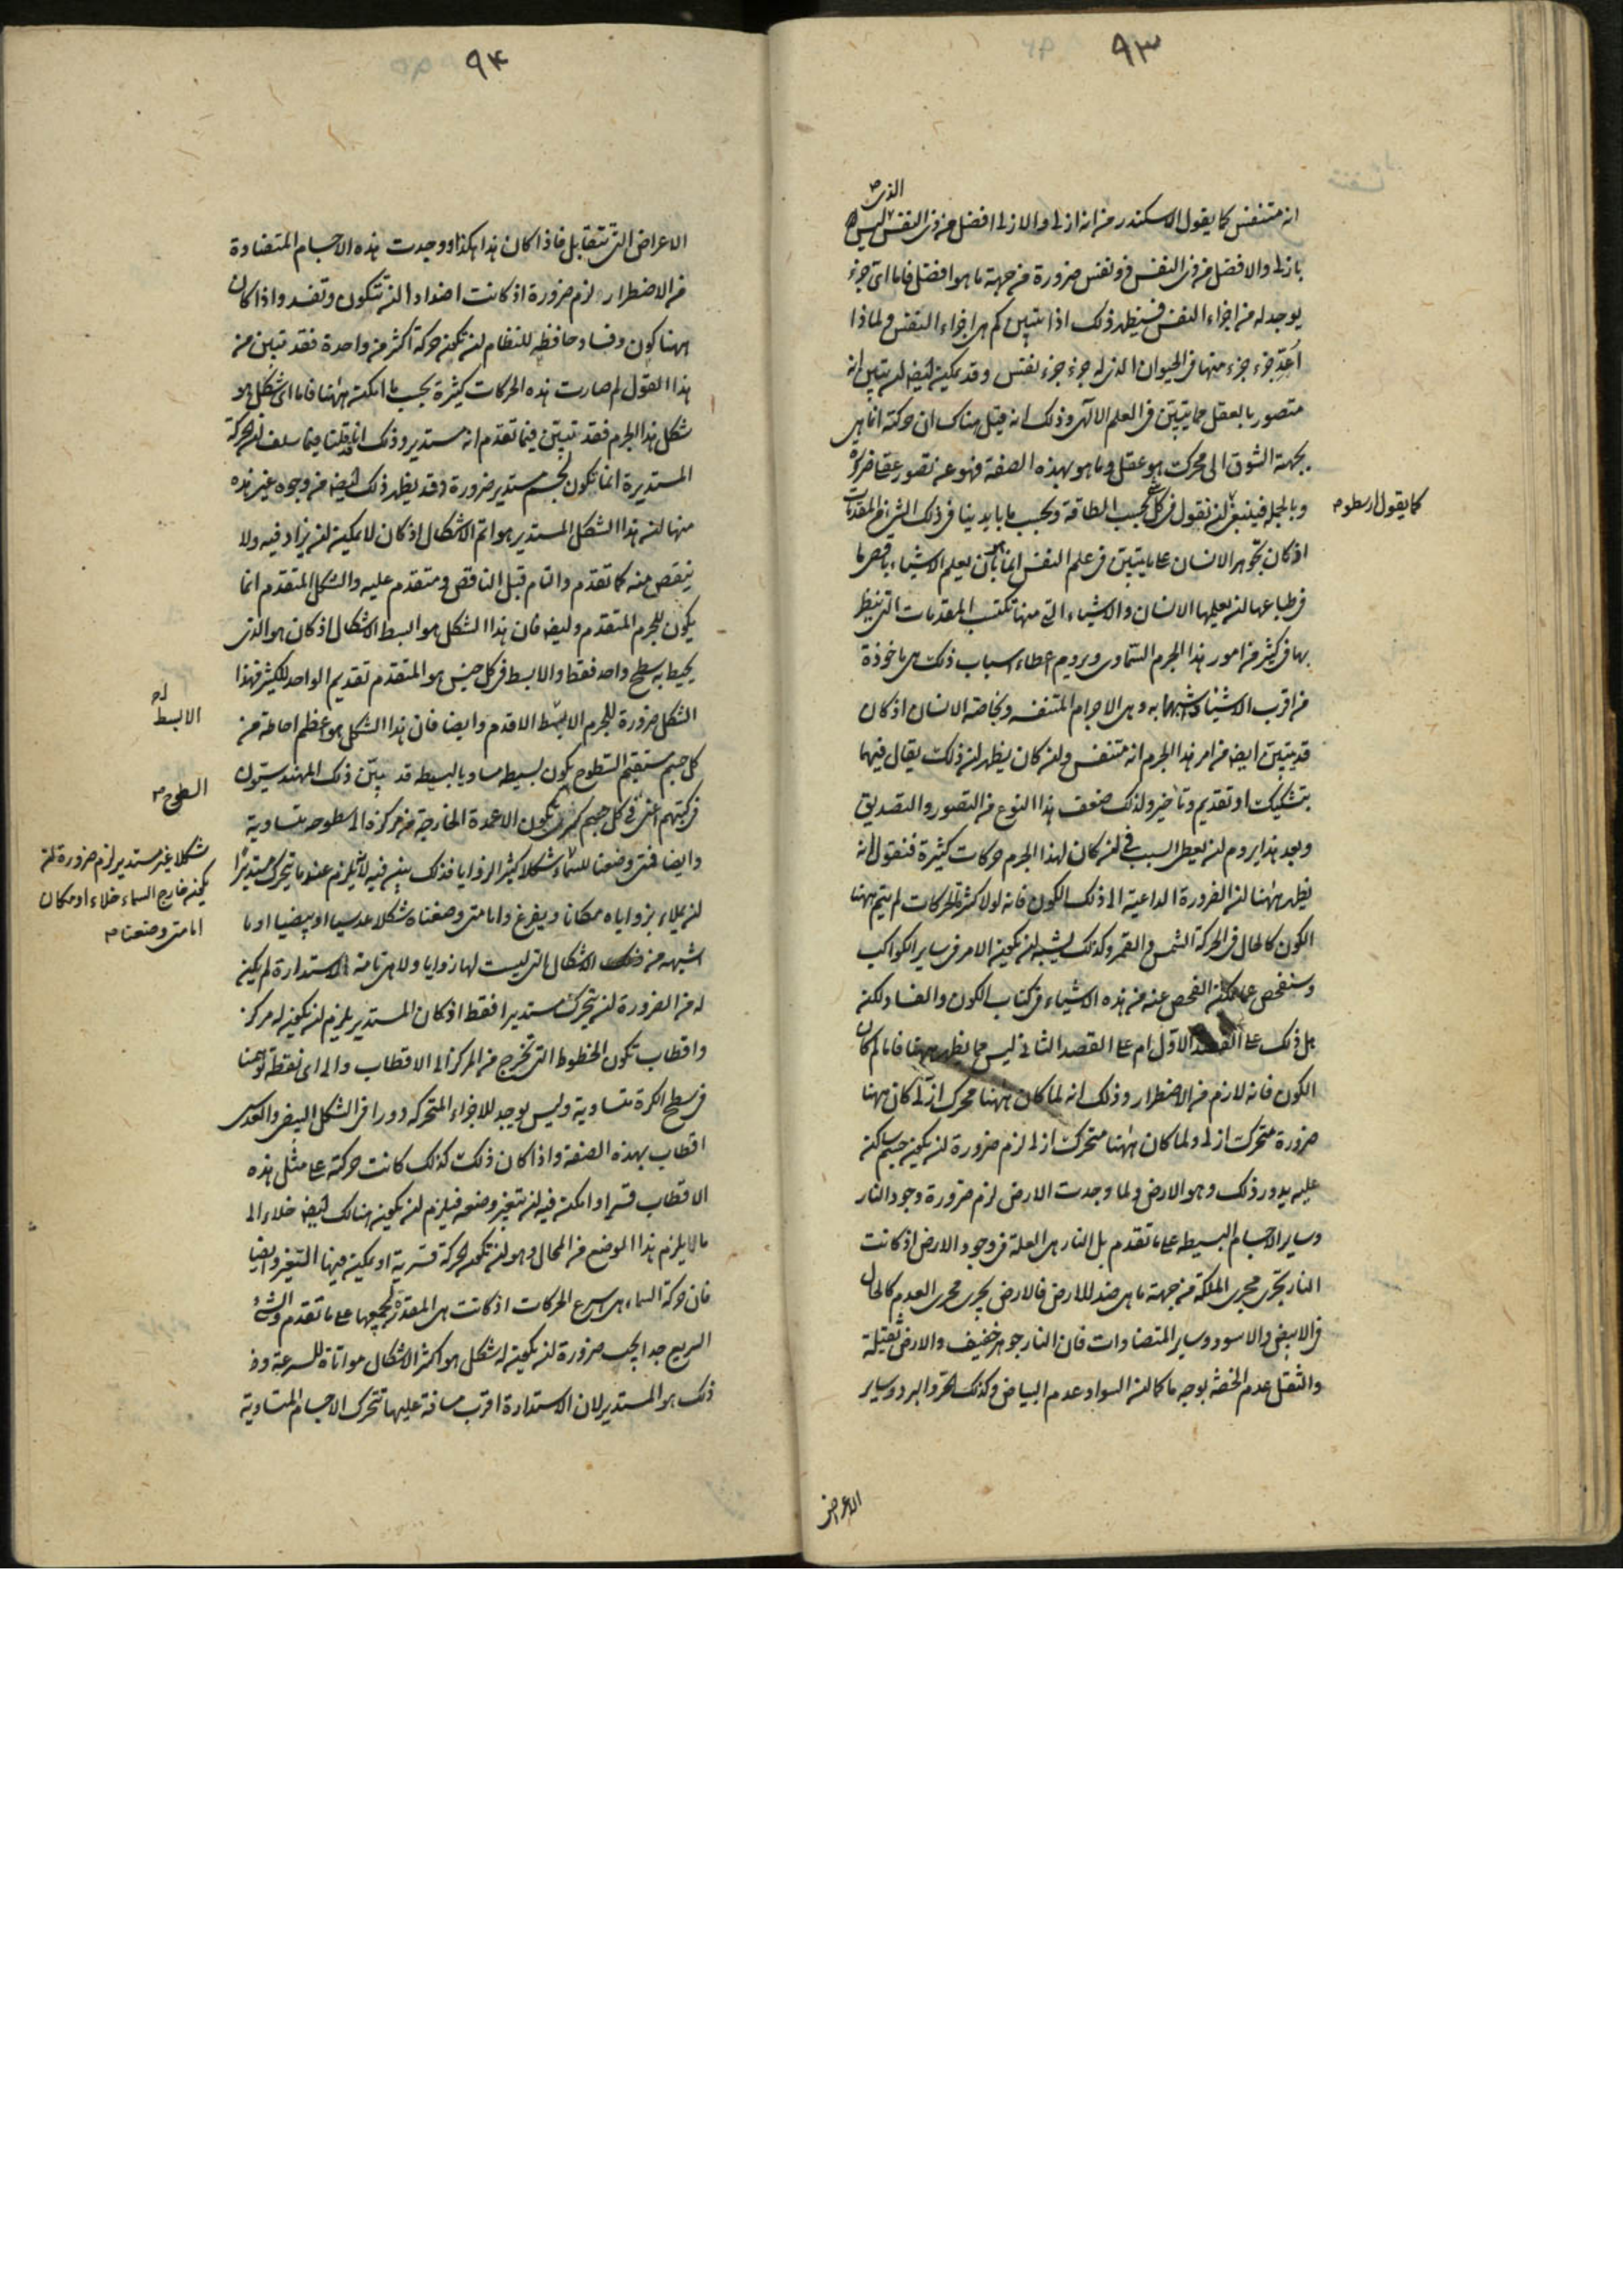 ٩٣
الذى
انه متنفس كما يقول الاسكندر من انه ازلى والازلى افضل من ذى النفس ليس
بازلى والافضل من ذى النفس ذو نفس ضرورة من جهة ما هو افضل فاما اى جزء
يوجد له من اجزاء النفس فسيظهر ذلك اذا تبين كم هى اجزاء النفس ولماذا
اُعِدّ جزء جزء منها فى الحيوان الذى له جزء جزء نفس وقد يمكن ايضا ان يتبين انه
متصور بالعقل مما يتبين فى العلم الالهى وذلك انه قيل هناك ان حركته انما هى
بجهة الشوق الى محرك هو عقل وما هو بهذه الصفة فهو عنه تصور عقلى ضرورة
كما يقول ارسطو
وبالجملة فينبغى ان نقول فى كل بحسب الطاقة وبحسب ما بايدينا فى ذلك المقدمات
اذ كان تجوهر الانسان على ما يتبين فى علم النفس انما هو بان يعلم الاشياء باقصى ما
فى طباعها ان يعلمها الانسان والاشياء التى منها تكتسب المقدمات التى ينظر
بها فى كثير من امور هذا الجرم السماوى ويروم اعطاء اسباب ذلك هى ماخوذة
من اقرب الاشياء شبها به وهى الاجرام المتنفسة وبخاصة الانسان اذ كان
قد يتبين ايضا من امر هذا الجرم انه متنفس وان كان يظهر ان ذلك يقال فيهما
بتشكيك او تقديم وتاخير ولذلك ضعف هذا النوع من التصور والتصديق
وبعد هذا يروم ان يعطى السبب فى ان كان لهذا الجرم حركات كثيرة فنقول انه
يظهر ههنا ان الضرورة الداعية الى ذلك الكون فانه لولا كثرة الحركات لم يتم ههنا
الكون كالحال فى الحركة الشمس والقمر وكذلك يشبه ان يكون الامر فى ساير الكواكب
وسنفحص عما يمكن الفحص عنه من هذه الاشياء فى كتاب الكون والفساد لكن
هل ذلك على القصد الاول ام على القصد الثانى ليس مما يظهر ههنا فاما لم كان
الكون فانه لازم من الاضطرار وذلك انه لما كان ههنا محرك ازلى كان ههنا
ضرورة متحرك ازلى ولما كان ههنا متحرك ازلى لزم ضرورة ان يكون جسم ساكن
عليه يدور ذلك وهو الارض ولما وجدت الارض لزم ضرورة وجود النار
وساير الاجسام البسيطه على ما تقدم بل النار هى العلة فى وجود الارض اذ كانت
النار تجرى مجرى الملكة من جهة ما هى ضد للارض فالارض يجرى مجرى العدم كالحال
فى الابيض والاسود وساير المتضادات فان النار جوهر خفيف والارض ثقيلة
والثقل عدم الخفة بوجه ما كما ان السواد عدم البياض وكذلك الحر والبرد وساير
الاعراض
٩۴
الاعراض التى تتقابل فاذا كان هذا هكذا ووجدت هذه الاجسام المتضادة
من الاضطرار لزم ضرورة اذ كانت اضدادا ان تتكون وتفسد واذا كان
ههنا كون وفساد حافظه للنظام ان تكون حركة اكثر من واحدة فقد تبين من
هذا القول لم صارت هذه الحركات كثيرة بحسب ما امكنه ههنا فاما اى شكل هو
شكل هذا الجرم فقد تبين فيما تقدم انه مستدير وذلك انا قد قلنا فيما سلف ان الحركة
المستديرة انما تكون لجسم مستدير ضرورة وقد يظهر ذلك ايضا من وجوه غير هذه
منها ان هذا الشكل المستدير هو اتم الاشكال اذ كان لا يمكن ان يزاد فيه ولا
ينقص منه كما تقدم والتام قبل الناقص ومتقدم عليه والشكل المتقدم انما
يكون للجرم المتقدم وايضا فان هذا الشكل هو ابسط الاشكال اذ كان هو الذى
يحيط به سطح واحد فقط والابسط فى كل جنس هو المتقدم تقديم الواحد للكثير فهذا
الشكل ضرورة للجرم الابسط الاقدم وايضا فان هذا الشكل هو اعظم احاطة من
الابسط
كل جسم مستقيم السطوح يكون بسيطه مساويا لبسيطه قد يبيّن ذلك المهندسون
السطوح
فى كتبهم اعنى فى كل جسم كثير تكون الاعمدة الخارجة من مركزه الى سطوحه متساوية
وايضا فمتى وضعنا للسماء شكلا كثير الزوايا فذلك بيّن فيه لانه يلزم عندما يتحرك مستديرًا
شكلا غير مستدير لزم ضرورة ان
يكون خارج السماء خلاء او مكان
اما متى وضعنا
ان يملاء بزواياه مكانا ويفرغ واما متى وضعناه شكلا عدسيا او بيضيا او ما
اشبهه من الاشكال التى ليست لها زوايا ولا هى تامة الاستدارة لم يكن
له من الضرورة ان يتحرك مستديرا فقط اذ كان المستدير يلزم ان يكون له مركز
واقطاب تكون الخطوط التى تخرج من المركز الى الاقطاب والى اى نقطة توهمنا
فى سطح الكرة متساوية وليس يوجد للاجزاء المتحركه دورا فى الشكل البيضى والعدسى
اقطاب بهذه الصفة واذا كان ذلك كذلك كانت حركته على مثل هذه
الاقطاب قسرا وامكن فيه ان يتغير وضعه فيلزم ان يكون هنالك ايضا خلاء الى
ما لا يلزم هذا الموضع من المحال وهو ان تكون الحركة قسرية او يمكن فيها التغير وايضا
فان حركة السماء هى اسرع الحركات اذ كانت هى المقدرة لجميعها على ما تقدم والشئ
السريع جدا يجب ضرورة ان يكون له شكل هو اكثر الاشكال مواتاة للسرعة و
ذلك هو المستدير لان الاستدارة اقرب مسافة عليها تتحرك الاجسام المتساوية